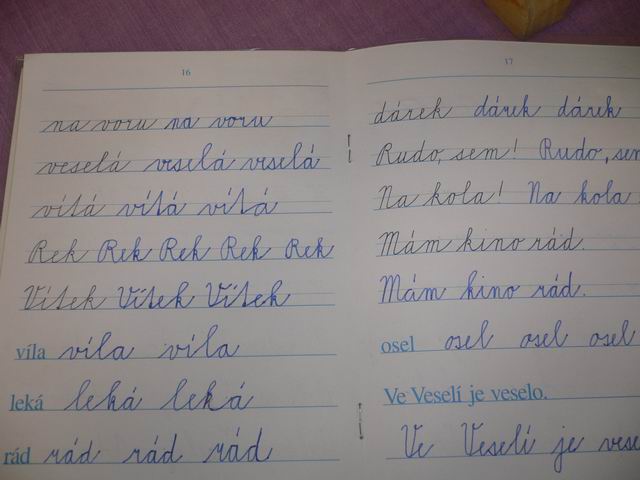 16
na voru na voru
veselá veselá veselá
vítá vítá vítá
Rek Rek Rek Rek Rek
Vítek Vítek Vítek
víla víla víla
leká leká leká
rád rád rád rád
17
dárek dárek dárek
Rudo, sem! Rudo, sem
Na kola! Na kola
Mám kino rád.
Mám kino rád.
osel osel osel osel
Ve Veselí je veselo.
Ve Veselí je vese